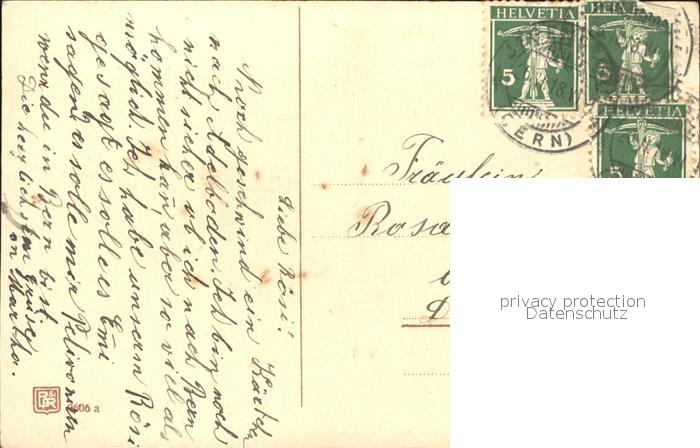 Liebe Rosi!
Noch geschwind ein Kärtch
nach Adelboden. Ich bin noch
nicht sicher ob ich nach Bern
kommen kan̄ aber so viel als
möglich. Ich habe unserm Rösi
gesagt es solle es Emi
sagen es solle mir Telivonam
wen̄ du in Bern bist.
Die herzlichsten Grüsse
von Martha.
HELVETIA
5
HELVETIA
5
HELVETIA
5
(BERN)
Fräulein
Rosa
privacy protection
Datenschutz
606 a